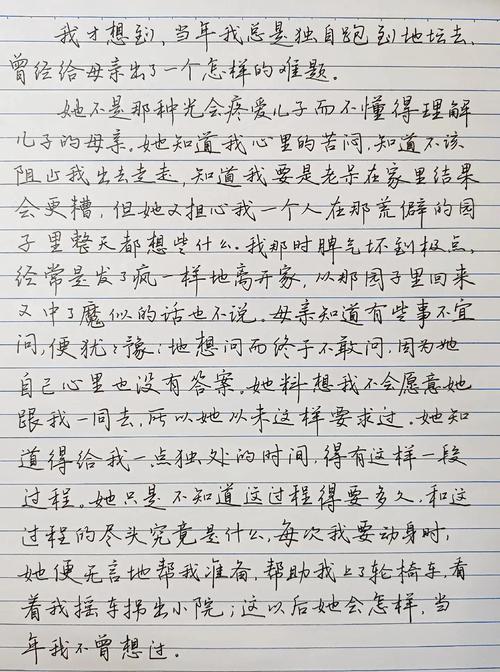 我才想到，当年我总是独自跑到地坛去，
曾经给母亲出了一个怎样的难题。
她不是那种光会疼爱儿子而不懂得理解
儿子的母亲。她知道我心里的苦闷，知道不该
阻止我出去走走，知道我要是老呆在家里结果
会更糟，但她又担心我一个人在那荒僻的园
子里整天都想些什么。我那时脾气坏到极点，
经常是发了疯一样地离开家，从那园子里回来
又中了魔似的话也不说。母亲知道有些事不宜
问，便犹犹豫豫地想问而终于不敢问，因为她
自己心里也没有答案。她料想我不会愿意她
跟我一同去，所以她从未这样要求过。她知
道得给我一点独处的时间，得有这样一段
过程。她只是不知道这过程得要多久，和这
过程的尽头究竟是什么。每次我要动身时，
她便无言地帮我准备，帮助我上了轮椅车，看
着我摇车拐出小院；这以后她会怎样，当
年我不曾想过。